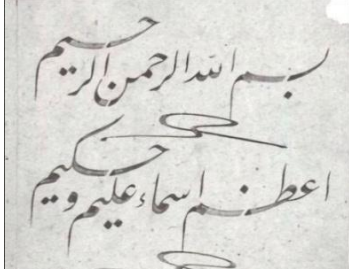 بسم الله الرحمن الرحیم
اعظم اسماء علیم و حکیم